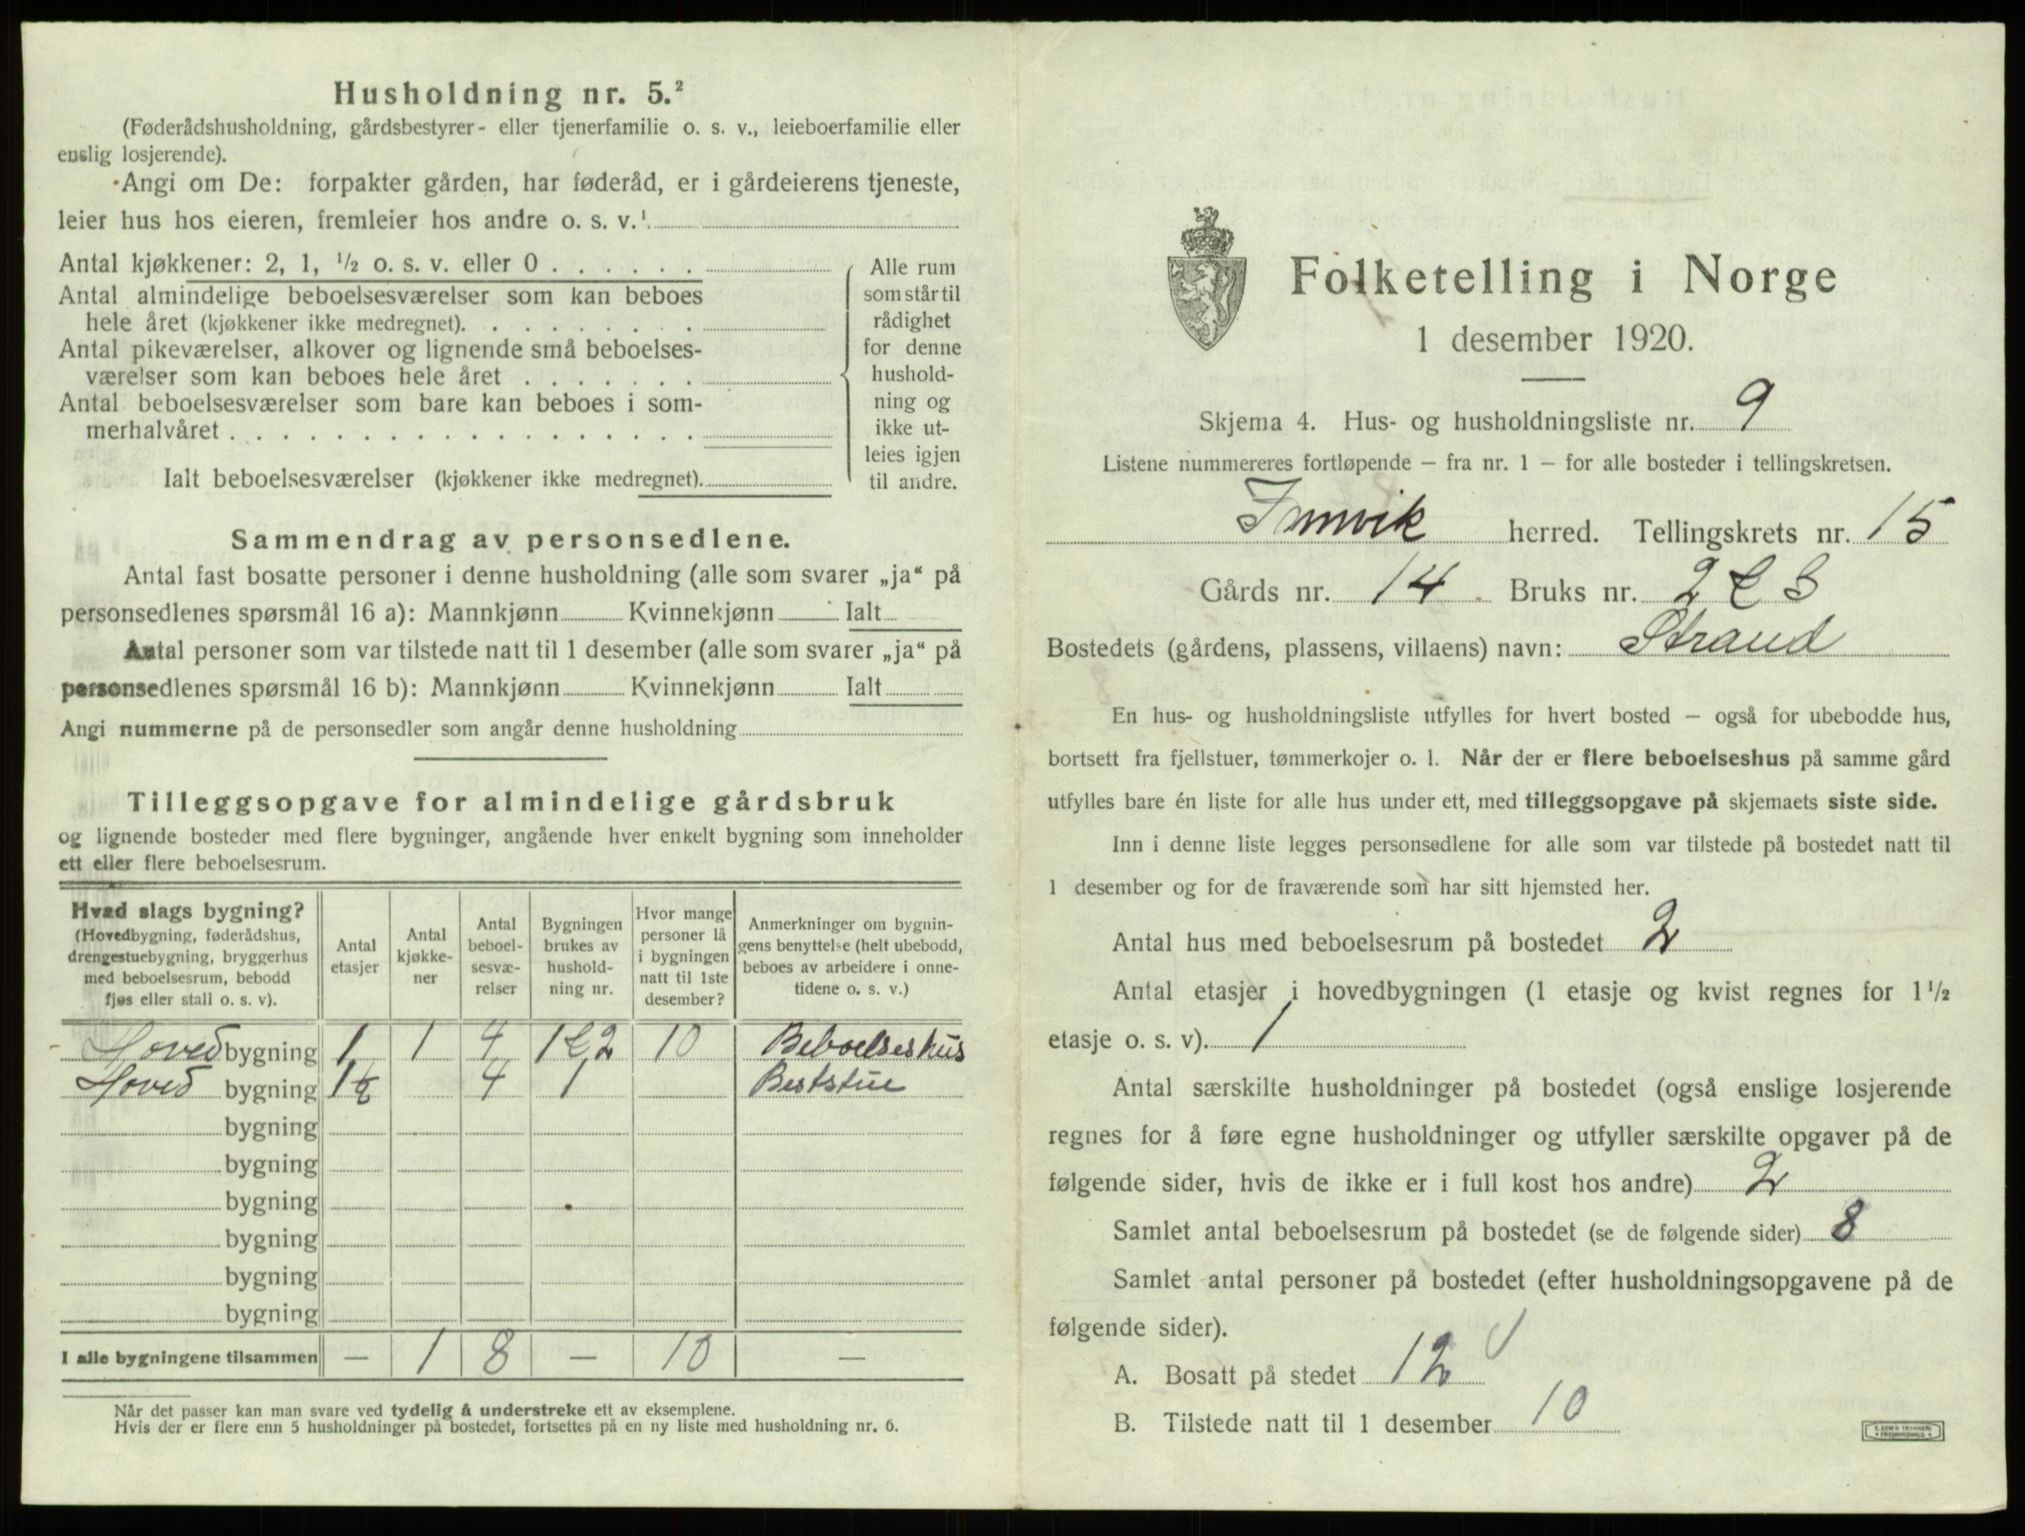 Husholdning nr. 5.²
(Føderådshusholdning, gårdsbestyrer- eller tjenerfamilie o. s. v., leieboerfamilie eller
enslig losjerende).
Angi om De: forpakter gården, har føderåd, er i gårdeierens tjeneste,
leier hus hos eieren, fremleier hos andre o. s. v.¹
Antal kjøkkener: 2, 1, ½ o. s. v. eller 0 . . . . . .
Antal almindelige beboelsesværelser som kan beboes
hele året (kjøkkener ikke medregnet). . . . . . . . .
Antal pikeværelser, alkover og lignende små beboelses-
værelser som kan beboes hele året . . . . . . .
Antal beboelsesværelser som bare kan beboes i som-
merhalvåret . . . . . . . . . . . . . . . . . .
Ialt beboelsesværelser (kjøkkener ikke medregnet).
Alle rum
som står til
rådighet
for denne
hushold-
ning og
ikke ut-
leies igjen
til andre.
Sammendrag av personsedlene.
Antal fast bosatte personer i denne husholdning (alle som svarer „ja“ på
personsedlenes spørsmål 16 a): Mannkjønn Kvinnekjønn Ialt
Antal personer som var tilstede natt til 1 desember (alle som svarer „ja“ på
personsedlenes spørsmål 16 b): Mannkjønn Kvinnekjønn Ialt
Angi nummerne på de personsedler som angår denne husholdning
Tilleggsopgave for almindelige gårdsbruk
og lignende bosteder med flere bygninger, angående hver enkelt bygning som inneholder
ett eller flere beboelsesrum.
Hvad slags bygning?
(Hovedbygning, føderådshus,
drengestuebygning, bryggerhus
med beboelsesrum, bebodd
fjøs eller stall o. s. v).
Antal
etasjer
Antal
kjøkke-
ner
Antal
beboel-
sesvæ-
relser
Bygningen
brukes av
hushold-
ning nr.
Hvor mange
personer lå
i bygningen
natt til 1ste
desember?
Anmerkninger om bygnin-
gens benyttelse (helt ubebodd,
beboes av arbeidere i onne-
tidene o. s. v.)
Hoved bygning 1 1 4 1 & 2 10 Beboelseshus
Hoved bygning 4 1 Beststue
bygning
bygning
bygning
bygning
bygning
bygning
I alle bygningene tilsammen — 1 8 — 10 —
Når det passer kan man svare ved tydelig å understreke ett av eksemplene.
Hvis der er flere enn 5 husholdninger på bostedet, fortsettes på en ny liste med husholdning nr. 6.
Folketelling i Norge
1 desember 1920.
Skjema 4. Hus- og husholdningsliste nr. 9
Listene nummereres fortløpende – fra nr. 1 – for alle bosteder i tellingskretsen.
Innvik herred. Tellingskrets nr. 15
Gårds nr. 14 Bruks nr. 2 & 3
Bostedets (gårdens, plassens, villaens) navn: Strand
En hus- og husholdningsliste utfylles for hvert bosted – også for ubebodde hus,
bortsett fra fjellstuer, tømmerkojer o. l. Når der er flere beboelseshus på samme gård
utfylles bare én liste for alle hus under ett, med tilleggsopgave på skjemaets siste side.
Inn i denne liste legges personsedlene for alle som var tilstede på bostedet natt til
1 desember og for de fraværende som har sitt hjemsted her.
Antal hus med beboelsesrum på bostedet 2
Antal etasjer i hovedbygningen (1 etasje og kvist regnes for 1½
etasje o. s. v). 1
Antal særskilte husholdninger på bostedet (også enslige losjerende
regnes for å føre egne husholdninger og utfyller særskilte opgaver på de
følgende sider, hvis de ikke er i full kost hos andre) 2
Samlet antal beboelsesrum på bostedet (se de følgende sider) 8
Samlet antal personer på bostedet (efter husholdningsopgavene på de
følgende sider).
A. Bosatt på stedet 12
B. Tilstede natt til 1 desember 10